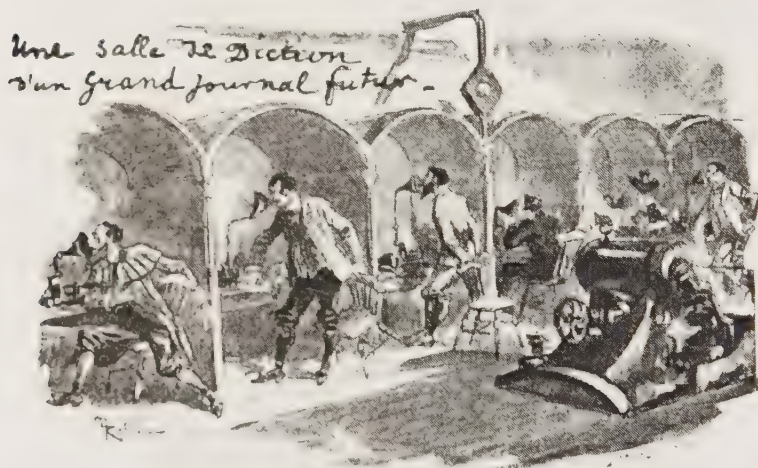 Une Salle de Diction
d'un Grand Journal futur_